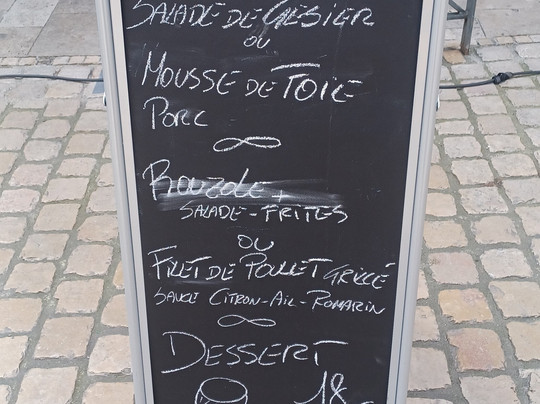 SALADE DE GESIER
OU
MOUSSE DE FOIE
PORC
BOUZOLE +
SALADE-FRITES
OU
FILET DE POULET GRILLÉ
SAUCE CITRON-AIL-ROMARIN
DESSERT
18